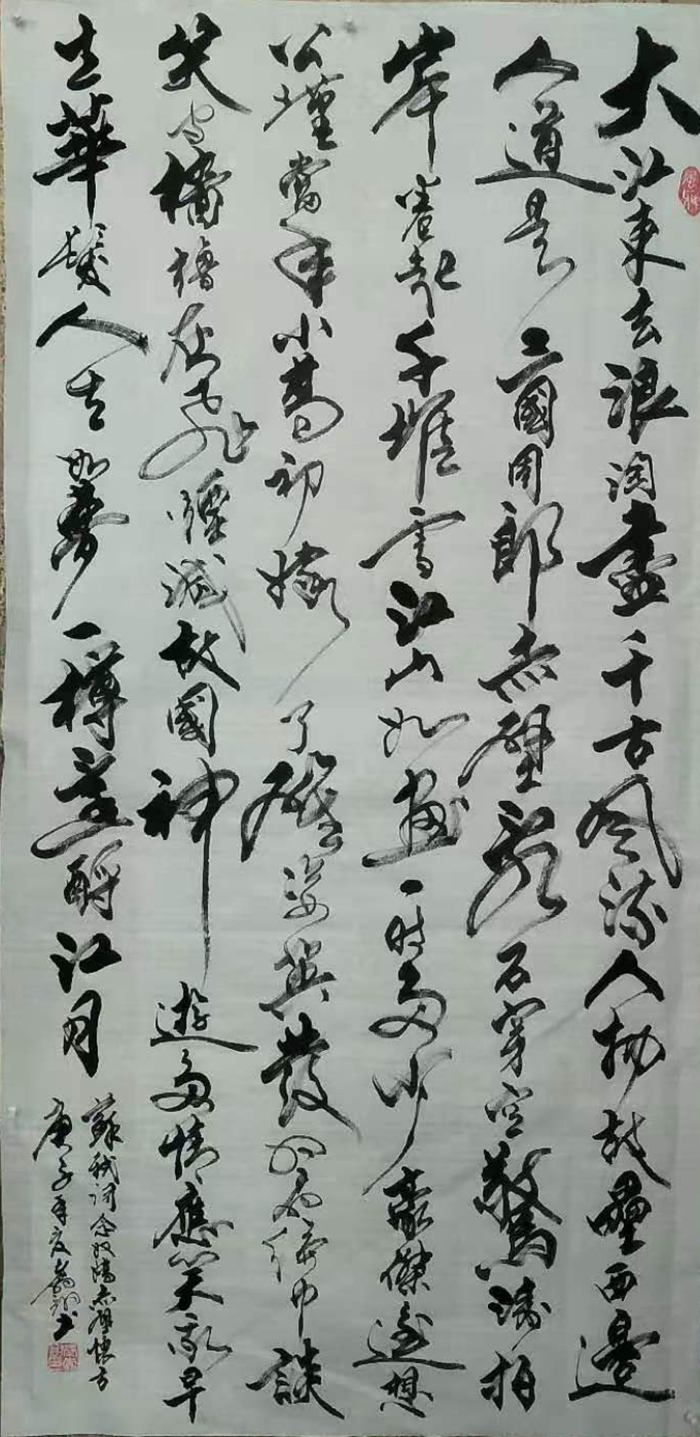 大江東去浪淘盡千古風流人物故壘西邊
人道是三國周郎赤壁亂石穿空驚濤拍
岸捲起千堆雪江山如畫一時多少豪傑遙想
公瑾當年小喬初嫁了雄姿英發羽扇綸巾談
笑間檣櫓灰飛煙滅故國神遊多情應笑我早
生華髮人如夢一樽還酹江月
蘇軾詞念奴嬌赤壁懷古
庚子年夏書